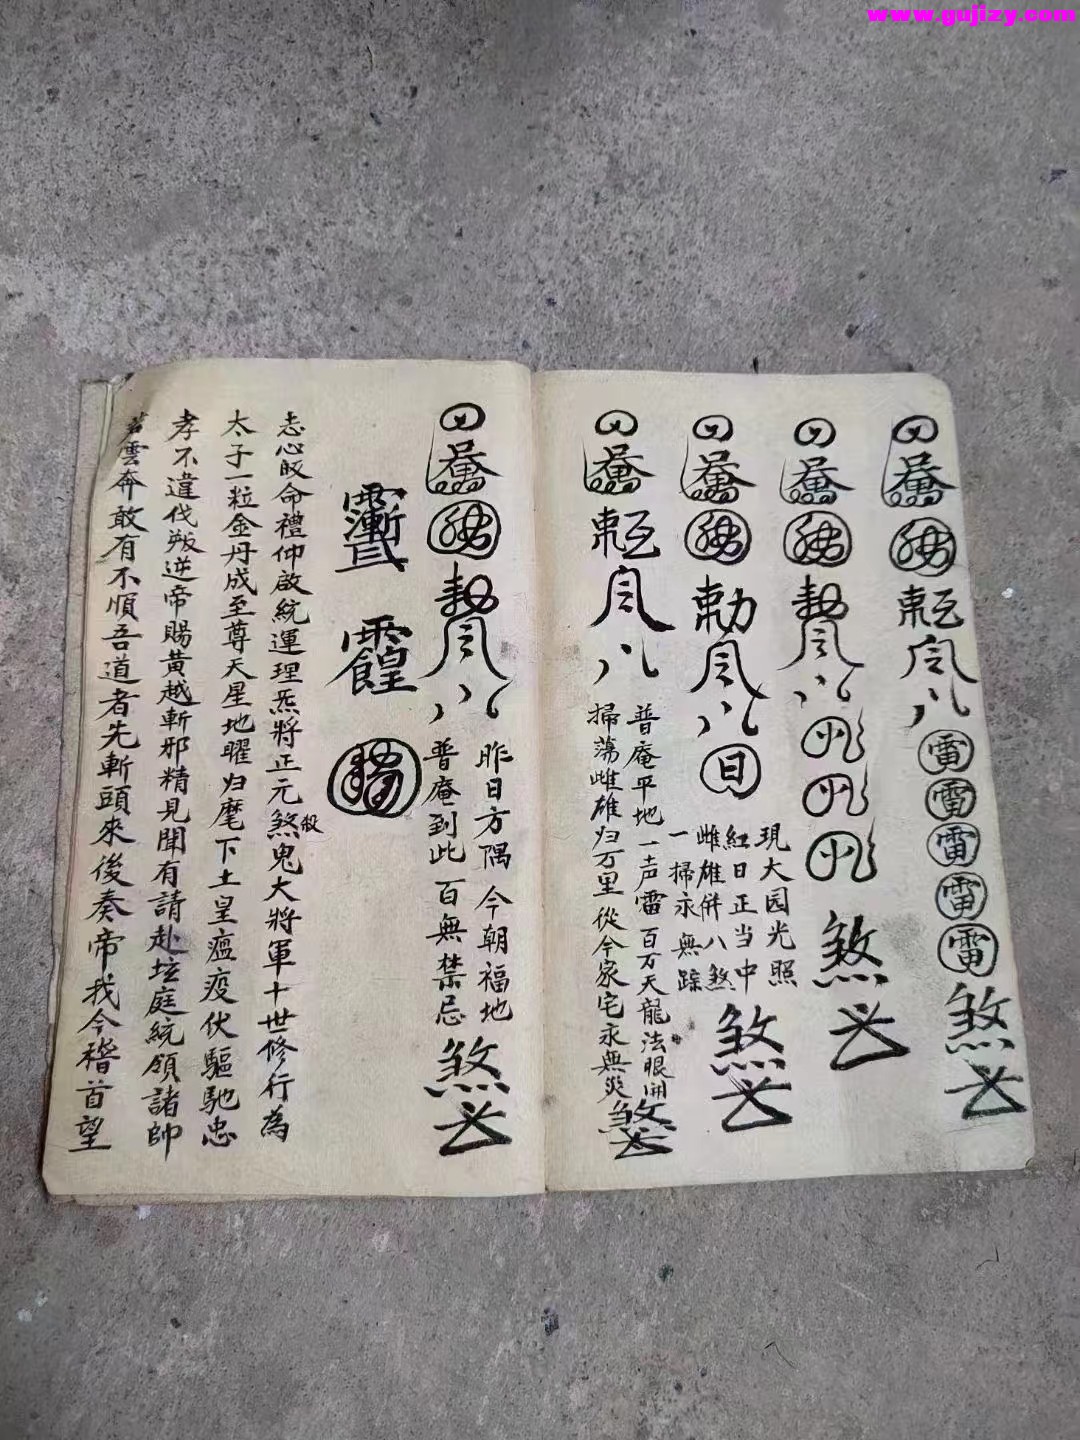 www.gujizy.com
勅
雷
雷
雷
雷
雷
煞
煞
勅
日
現大园光照
紅日正当中
雌雄併八煞
一掃永無踪
煞
勅
普庵平地一声雷百万天龍法眼開
掃蕩雌雄归万里從今家宅永無災
煞
昨日方隅今朝福地
普庵到此百無禁忌
煞
志心皈命禮仰啟統運理炁將正元煞鬼大將軍十世修行為
殺
太子一粒金丹成至尊天星地曜归麾下土皇瘟疫伏驅馳忠
孝不違伐叛逆帝賜黄越斬邪精見聞有請赴坛庭統領諸帥
若雲奔敢有不順吾道者先斬頭來後奏帝我今稽首望